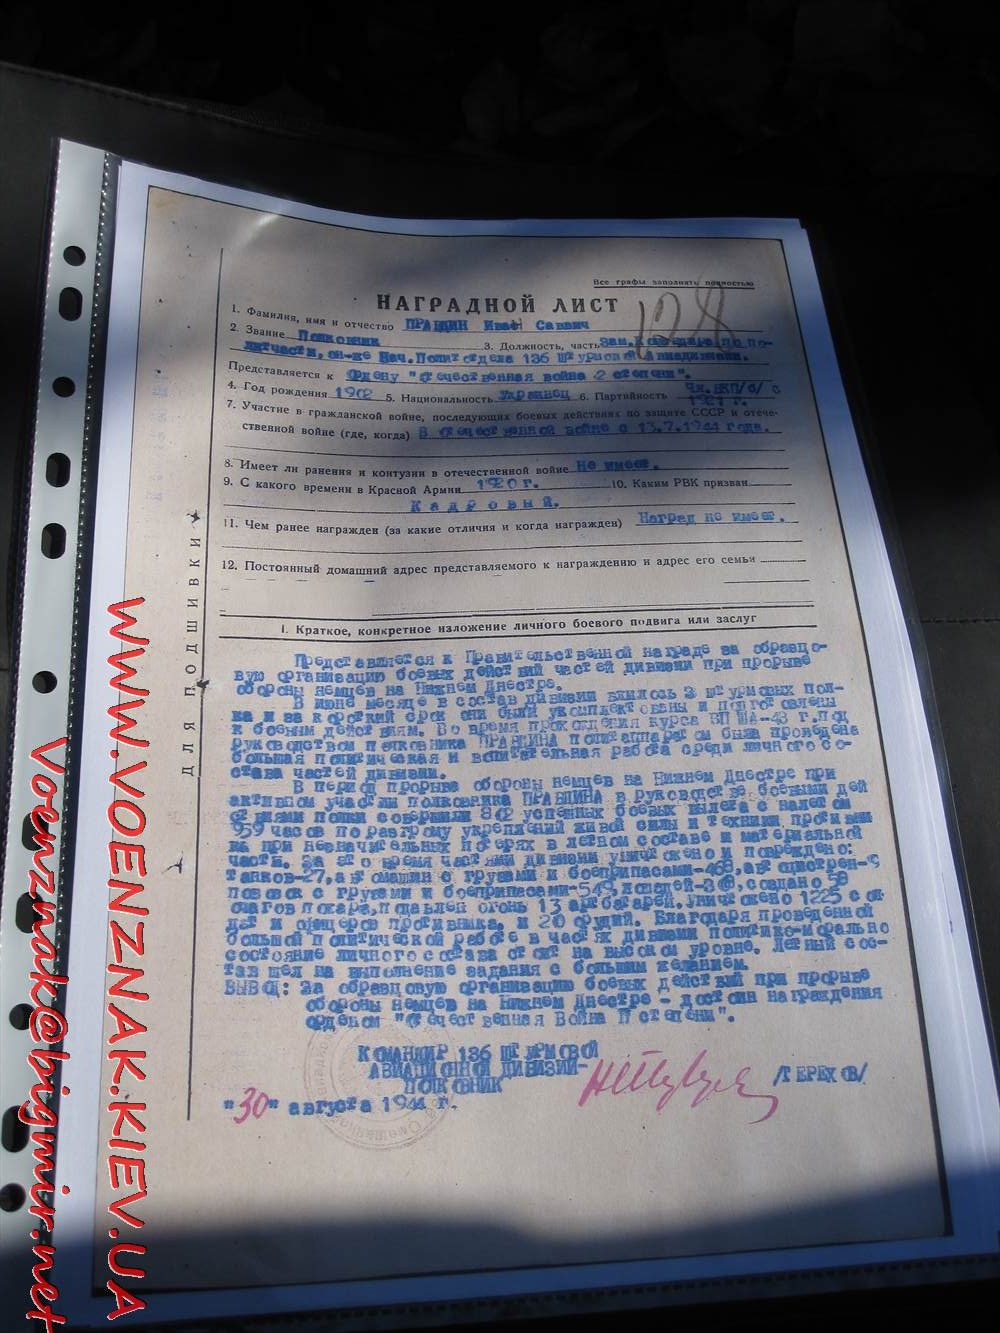 Все графы заполнять полностью
НАГРАДНОЙ ЛИСТ
128
1. Фамилия, имя и отчество ПРАВДИН Иван Саввич
2. Звание Полковник 3. Должность, часть Зам. Командира по по-
литчасти, он-же Нач. Политотдела 136 Штурмовой Авиадивизии.
Представляется к Ордену "Отечественная война 2 степени".
4. Год рождения 1902 5. Национальность Украинец 6. Партийность Чл. ВКП/б/ с
1921 г.
7. Участие в гражданской войне, последующих боевых действиях по защите СССР и отече-
ственной войне (где, когда) В отечественной войне с 13.7.1944 года.
8. Имеет ли ранения и контузии в отечественной войне Не имеет.
9. С какого времени в Красной Армии 1920 г. 10. Каким РВК призван
Кадровый.
11. Чем ранее награжден (за какие отличия и когда награжден) Наград не имеет.
12. Постоянный домашний адрес представляемого к награждению и адрес его семьи
ДЛЯ ПОДШИВКИ
I. Краткое, конкретное изложение личного боевого подвига или заслуг
Представляется к Правительственной награде за образцо-
вую организацию боевых действий частей дивизии при прорыве
обороны немцев на Нижнем Днестре.
В июне месяце в состав дивизии влилось 2 штурмовых пол-
ка и за короткий срок они были укомплектованы и подготовлены
к боевым действиям. Во время прохождения курса БП ША-43 г. под
руководством полковника ПРАВДИНА политаппаратом была проведена
большая политическая и воспитательная работа среди личного со-
става частей дивизии.
В период прорыва обороны немцев на Нижнем Днестре при
активном участии полковника ПРАВДИНА в руководстве боевыми дей
ствиями полки совершили 802 успешных боевых вылета с налетом
959 часов по разгрому укреплений живой силы и техники противни
ка при незначительных потерях в летном составе и материальной
части. За это время частями дивизии уничтожено и повреждено:
танков-27, автомашин с грузами и боеприпасами-468, автоцистрен-9
повозок с грузами и боеприпасами-549, лошадей-308, создано 58
очагов пожара, подавлен огонь 13 артбатарей, уничтожено 1225 сол
дат и офицеров противника, и 20 орудий. Благодаря проведенной
большой политической работе в частях дивизии политико-морально
состояние личного состава стоит на высоком уровне. Летный сос-
тав шел на выполнение задания с большим желанием.
ВЫВОД: За образцовую организацию боевых действий при прорыве
обороны немцев на Нижнем Днестре - достоин награждения
орденом "Отечественная Война II степени".
КОМАНДИР 136 ШТУРМОВОЙ
АВИАЦИОННОЙ ДИВИЗИИ-
ПОЛКОВНИК /ТЕРЕХОВ/
"30" августа 1944 г.
WWW.VOENZNAK.KIEV.UA
Voenznak@bigmir.net